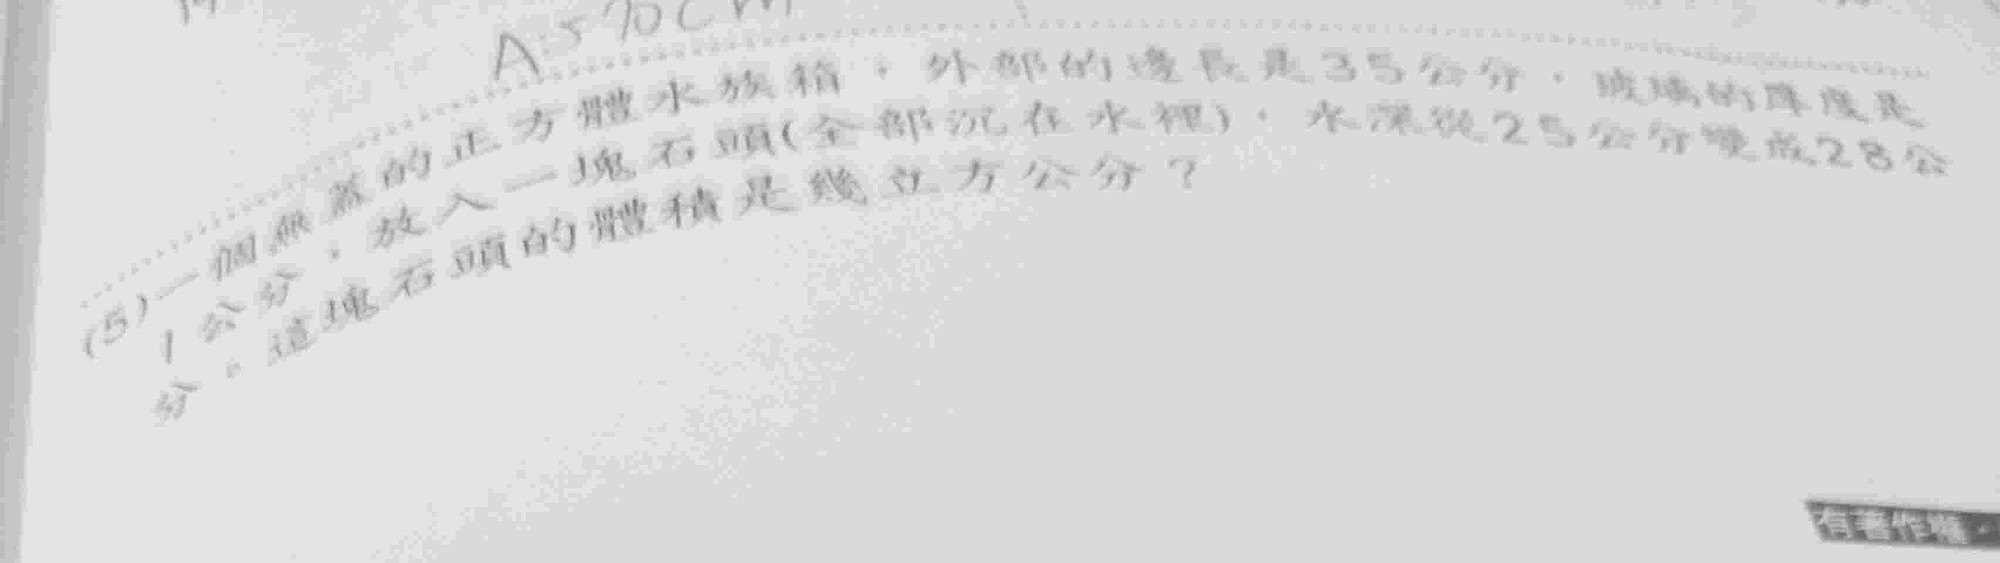 A:570cm
(5)一個無蓋的正方體水族箱，外部的邊長是35公分，玻璃的厚度是
1公分，放入一塊石頭(全部沉在水裡)，水深從25公分變成28公
分。這塊石頭的體積是幾立方公分？
有著作權·